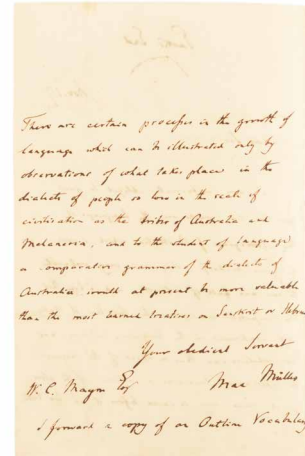 There are certain processes in the growth of
language which can be illustrated only by
observations of what takes place in the
dialects of people so low in the scale of
civilization as the tribes of Australia and
Melanesia, and to the student of language
a comparative grammar of the dialects of
Australia would at present be more valuable
than the most learned treatises on Sanskrit or Hebrew
Your obedient Servant
Max Müller
W. C. Mayne Esq
I forward a copy of an Outline Vocabulary